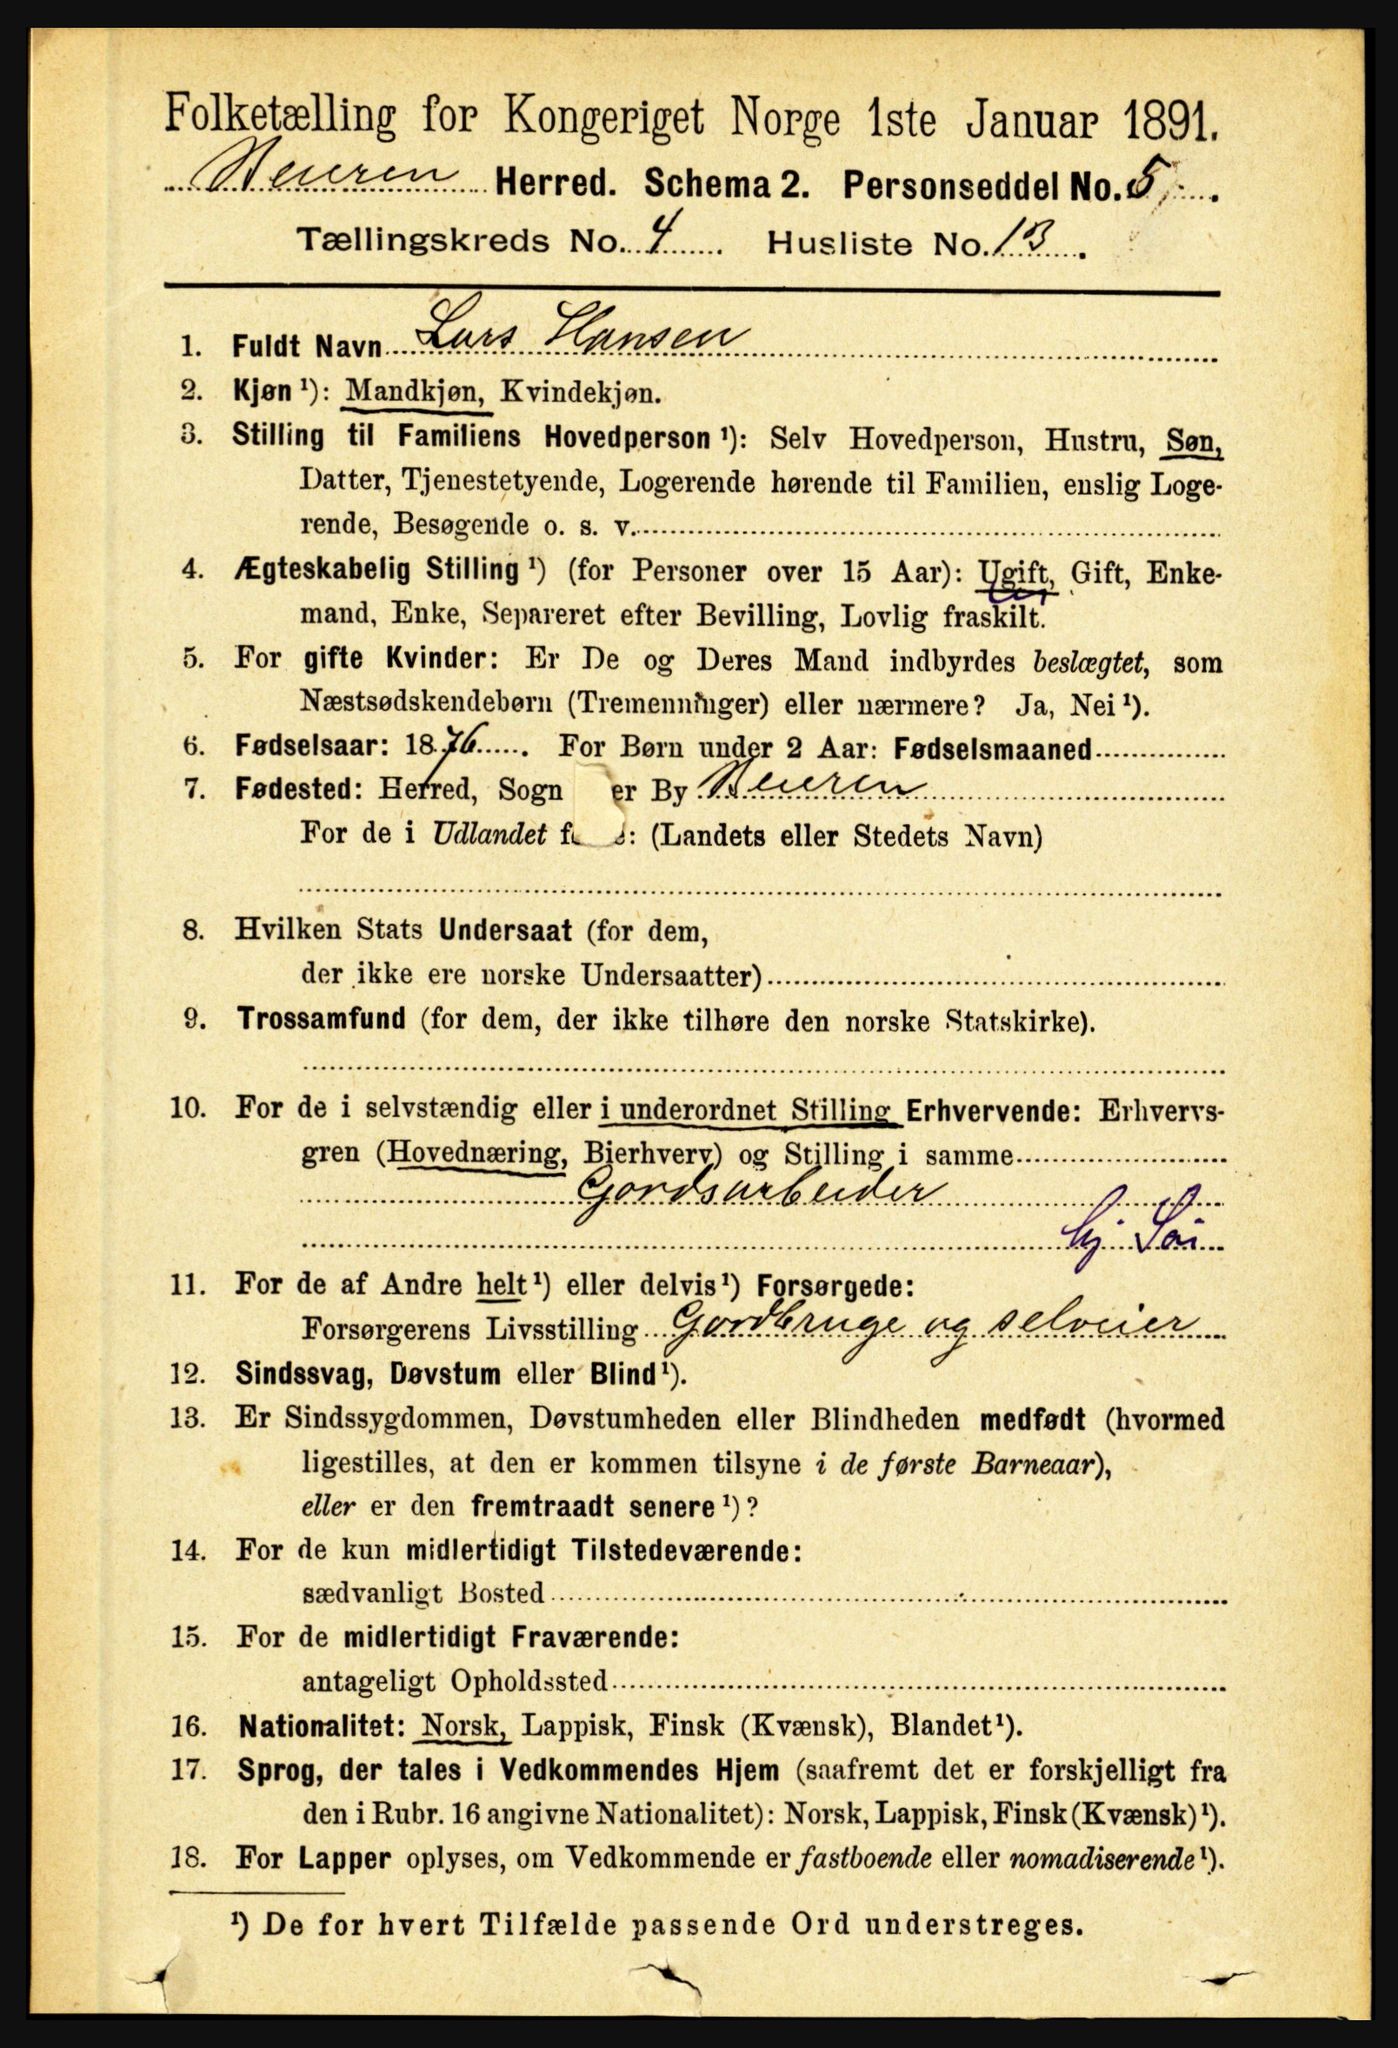 Folketælling for Kongeriget Norge 1ste Januar 1891.
Beieren Herred. Schema 2. Personseddel No. 5.
Tællingskreds No. 4 Husliste No. 13.
1. Fuldt Navn Lars Hansen
2. Kjøn ¹): Mandkjøn, Kvindekjøn.
3. Stilling til Familiens Hovedperson ¹): Selv Hovedperson, Hustru, Søn,
Datter, Tjenestetyende, Logerende hørende til Familien, enslig Loge-
rende, Besøgende o. s. v.
4. Ægteskabelig Stilling ¹) (for Personer over 15 Aar): Ugift, Gift, Enke-
mand, Enke, Separeret efter Bevilling, Lovlig fraskilt.
5. For gifte Kvinder: Er De og Deres Mand indbyrdes beslægtet, som
Næstsødskendebørn (Tremenninger) eller nærmere? Ja, Nei ¹).
6. Fødselsaar: 1876. For Børn under 2 Aar: Fødselsmaaned
7. Fødested: Herred, Sogn er By Beieren
For de i Udlandet f : (Landets eller Stedets Navn)
8. Hvilken Stats Undersaat (for dem,
der ikke ere norske Undersaatter)
9. Trossamfund (for dem, der ikke tilhøre den norske Statskirke).
10. For de i selvstændig eller i underordnet Stilling Erhvervende: Erhvervs-
gren (Hovednæring, Bierhverv) og Stilling i samme
Gordsarbeider
hj Søn
11. For de af Andre helt ¹) eller delvis ¹) Forsørgede:
Forsørgerens Livsstilling Gordbruge og selveier
12. Sindssvag, Døvstum eller Blind ¹).
13. Er Sindssygdommen, Døvstumheden eller Blindheden medfødt (hvormed
ligestilles, at den er kommen tilsyne i de første Barneaar),
eller er den fremtraadt senere ¹)?
14. For de kun midlertidigt Tilstedeværende:
sædvanligt Bosted
15. For de midlertidigt Fraværende:
antageligt Opholdssted
16. Nationalitet: Norsk, Lappisk, Finsk (Kvænsk), Blandet ¹).
17. Sprog, der tales i Vedkommendes Hjem (saafremt det er forskjelligt fra
den i Rubr. 16 angivne Nationalitet): Norsk, Lappisk, Finsk (Kvænsk) ¹).
18. For Lapper oplyses, om Vedkommende er fastboende eller nomadiserende ¹).
¹) De for hvert Tilfælde passende Ord understreges.